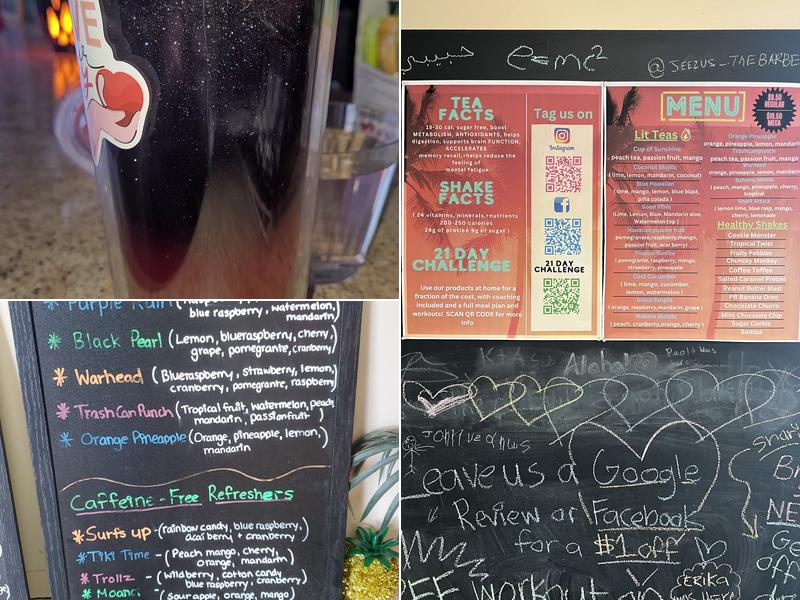 IE
حبيبي
e=mc²
@JEEZUS_TAEBARBE
TEA
FACTS
15-30 cal, sugar free, boost
METABOLISM, ANTIOXIDANTS, helps
digestion, supports brain FUNCTION,
ACCELERATES
memory recall,+helps reduce the
feeling of
mental fatigue
SHAKE
FACTS
( 24 vitamins, minerals,+nutrients
200-250 calories
24g of protien 9g of sugar )
21 DAY
CHALLENGE
Use our products at home for a
fraction of the cost, with coaching
included and a full meal plan and
workouts! SCAN QR CODE for more
info
Tag us on
Instagram
21 DAY
CHALLENGE
MENU
$8.50
REGULAR
$10.50
MEGA
Lit Teas
Cup of Sunshine
peach tea, passion fruit, mango
Coconut Mojito
( lime, lemon, mandarin, coconut)
Blue Hawaiian
( mango, lemon, blue blast,
piña colada )
Good Vibes
(Lime, Lemon, Blue, Mandarin aloe,
Watermelon top )
Hawaiian passion fruit
pomegranate,raspberry,mango,
passion fruit, acai berry)
Tropical Sunrise
( pomegrante, raspberry, mango,
strawberry, pineapple
Cool Cucumber
( lime, mango, cucumber,
lemon, watermelon )
Island Jungle
( orange, raspberry,mandarin, grape )
Hakuna Matata
( peach, cranberry,orange, cherry )
Orange Pineapple
orange, pineapple, lemon, mandarin
Trashcanpunch
peach tea, passion fruit, mango
Warhead
orange, pineapple, lemon, mandarin
Bahama Mama
( peach, mango, pineapple, cherry,
tropical
Shark Attack
( lemon lime, blue rasp, mango,
cherry, lemonade
Healthy Shakes
Cookie Monster
Tropical Twist
Fruity Pebbles
Chuncky Monkey
Coffee Toffee
Salted Caramel Pretzel
Peanut Butter Blast
PB Banana Oreo
Chocolate Churro
Mint Chocolate Chip
Sugar Cookie
Samoa
* Purple Rain
blue raspberry, watermelon,
mandarin)
* Black Pearl (Lemon, blueraspberry, cherry,
grape, pomegrante, cranberry)
* Warhead (Blueraspberry, strawberry, lemon,
cranberry, pomegrante, raspberry)
* TrashCanPunch (Tropical fruit, watermelon, peach,
mandarin, passionfruit)
* Orange Pineapple (Orange, pineapple, lemon,
mandarin)
Caffeine-Free Refreshers
* Surfs up - (rainbow candy, blue raspberry,
acai berry + cranberry)
* Tiki Time - (Peach mango, cherry,
orange, mandarin)
* Trollz - (Wildberry, cotton candy
blue raspberry, cranberry)
* Moana - (Sour apple, orange, mango)
Aloha
Paola was
eave us a Google
Review or Facebook
for a $1 off
EE workout
ERIKA
was Here